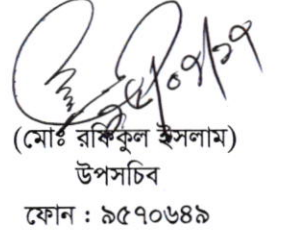 (মোঃ রফিকুল ইসলাম)
উপসচিব
ফোন : ৯৫৭০৬৪৯